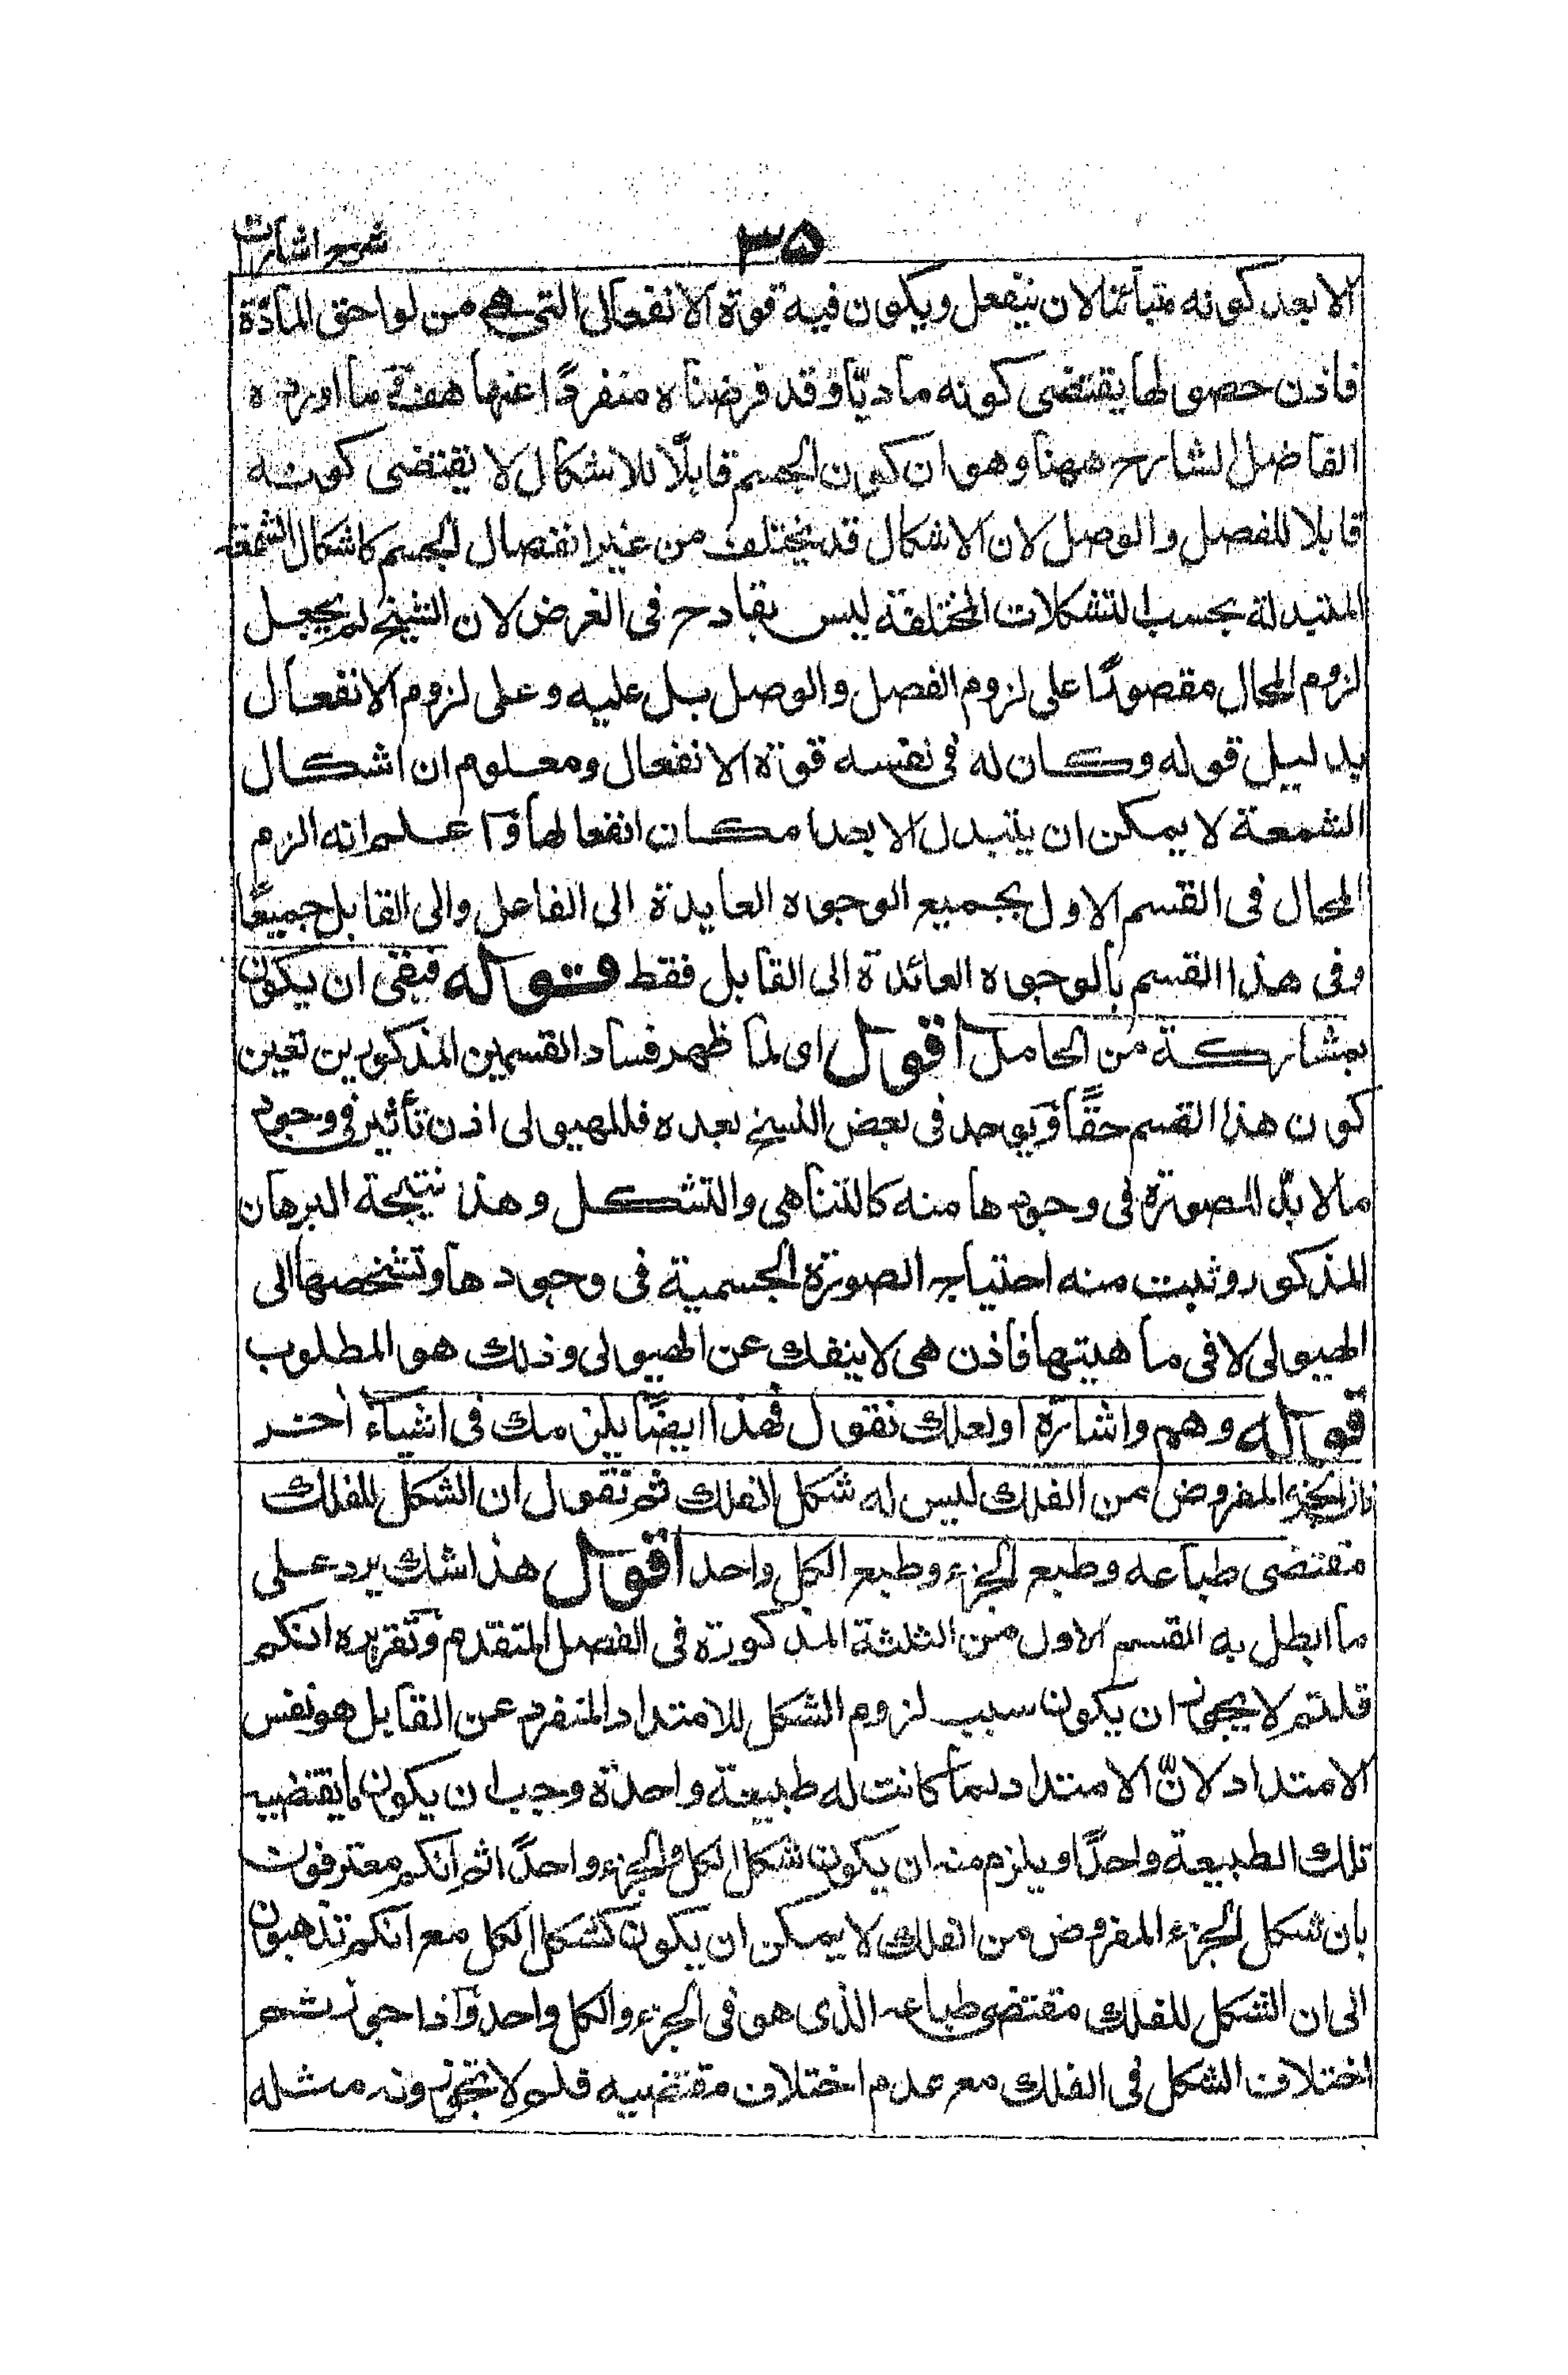 شرح اشارات
٣۵
الا بعد كونه متبائنا لان ينفعل ويكون فيه قوة الانفعال التى هى من لواحق المادّة
فاذن حصولها يقتضى كونه ماديّا وقد فرضناه منفردًا عنها هف وما اورده
الفاضل الشارح ههنا وهو ان كون الجسم قابلًا للاشكال لا يقتضى كونه
قابلا للفصل والوصل لان الاشكال قد يختلف من غير انفصال الجسم كاشكال الشمعة
المتبدلة بحسب التشكلات المختلفة ليس بقادح فى الغرض لان الشيخ لم يجعل
لزوم المحال مقصودًا على لزوم الفصل والوصل بل عليه وعلى لزوم الانفعال
بدليل قوله وكان له فى نفسه قوة الانفعال ومعلوم ان اشكال
الشمعة لا يمكن ان يتبدل الا بعد امكان انفعالها واعلم انه الزم
المحال فى القسم الاول بجميع الوجوه العايدة الى الفاعل والى القابل جميعًا
وفى هذا القسم بالوجوه العائدة الى القابل فقط قوله فبقى ان يكون
بمشاركة من الحامل اقول اى لما ظهر فساد القسمين المذكورين تعين
كون هذا القسم حقًا ويوجد فى بعض النسخ بعده فللهيولى اذن تأثير فى وجود
ما لا بدّ للصورة فى وجودها منه كالتناهى والتشكل وهذا نتيجة البرهان
المذكور وثبت منه احتياج الصورة الجسمية فى وجودها وتشخصها الى
الهيولى لا فى ماهيتها فاذن هى لا ينفك عن الهيولى وذلك هو المطلوب
قوله وهم واشارة او لعلك تقول فهذا ايضًا يلزمك فى اشياء اخر
فان الجزء المفروض من الفلك ليس له شكل الفلك ثم تقول ان الشكل للفلك
مقتضى طباعه وطبع الجزء وطبع الكل واحد اقول هذا شك يرد على
ما ابطل به القسم الاول من الثلثة المذكورة فى الفصل المتقدم وتقريره انكم
قلتم لا يجوز ان يكون سبب لزوم الشكل للامتداد المنفرد عن القابل هو نفس
الامتداد لانّ الامتداد لما كانت له طبيعة واحدة وجب ان يكون ما يقتضيه
تلك الطبيعة واحدًا ويلزم منه ان يكون شكل الكل والجزء واحدًا ثم انكم معترفون
بان شكل الجزء المفروض من الفلك لا يمكن ان يكون كشكل الكل مع انكم تذهبون
الى ان الشكل للفلك مقتضى طباعه الذى هو فى الجزء والكل واحد واذا جوزتم
اختلاف الشكل فى الفلك مع عدم اختلاف مقتضيه فلم لا تجوزونه مثله